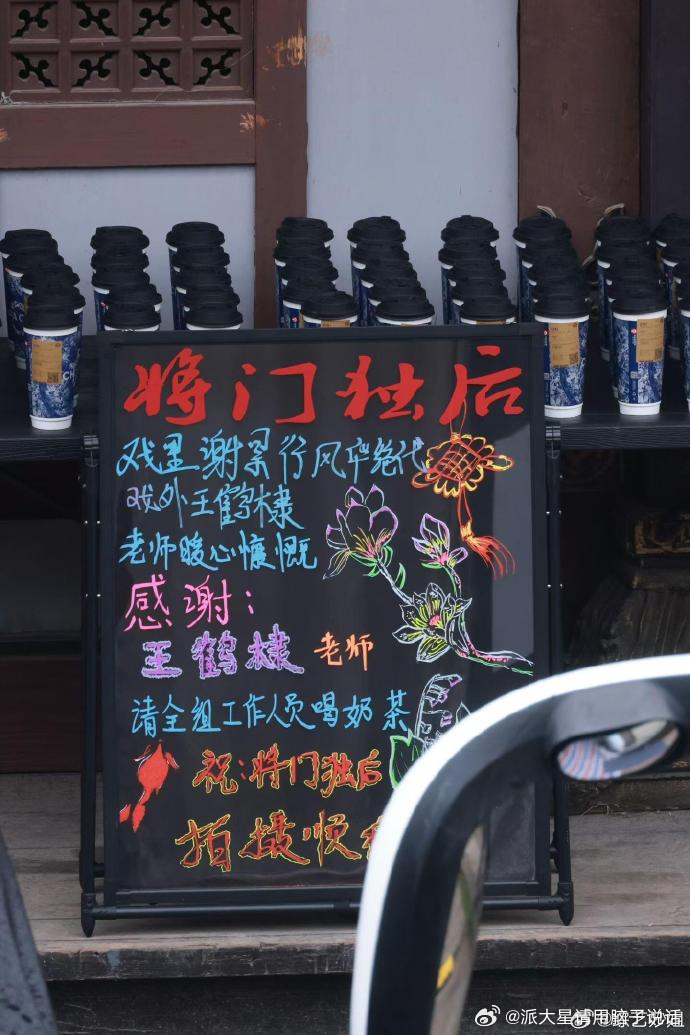 将门独后
戏里谢景行风华绝代
戏外王鹤棣
老师暖心慷慨
感谢：
王鹤棣 老师
请全组工作人员喝奶茶
祝：将门独后
拍摄顺
@派大星请用脑子说话